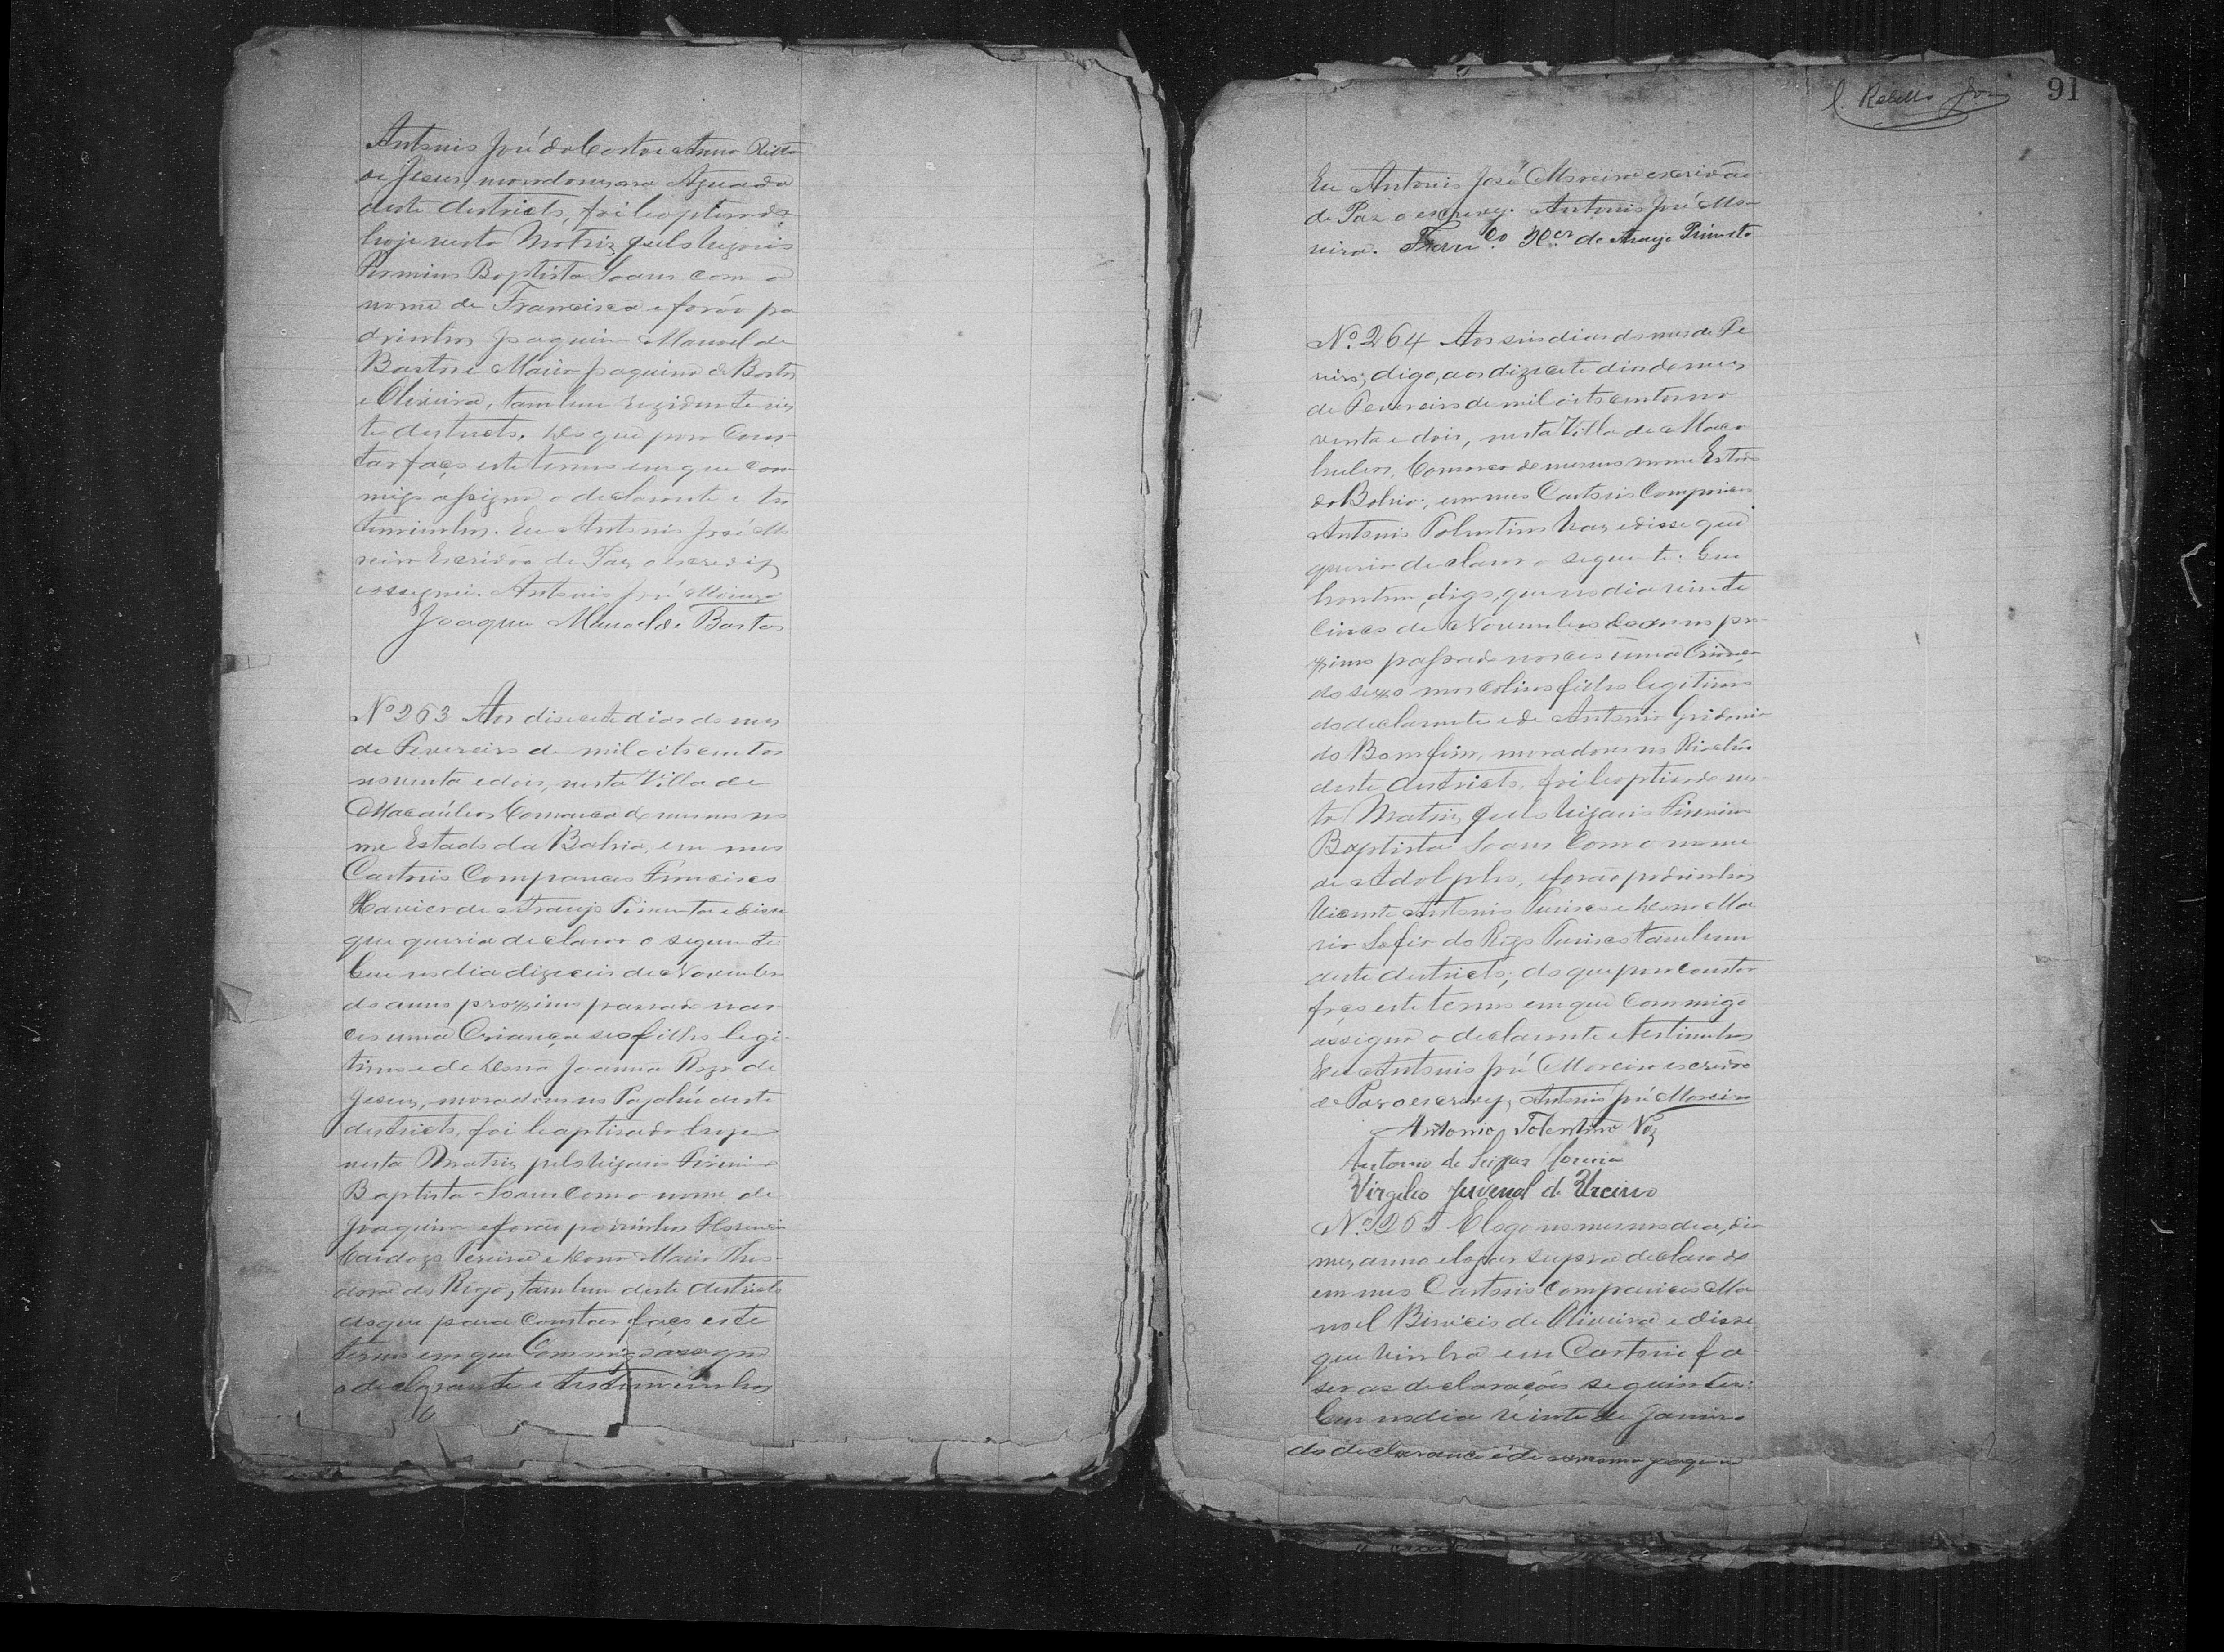 Antonio José da Costa e Anna Rita
de Jesus, moradores na Aguada
deste districto, foi baptisada
hoje nesta Matriz pelo Vigario
Firmino Baptista Soares com o
nome de Francisca e forão pa
drinhos Joaquim Manoel de
Bastos e Maria Joaquina de Bastos
e Oliveira, tambem rezidente nes
te destricto. Do que para Cons-
tar faço este termo em que com
migo assigna o declarante e tes
timunhas. Eu Antonio José Mo
reira Escrivão de Paz o escrevi
e assignei. Antonio José Moreira
Joaquim Manoel de Bastos
Nº 263 Aos disecete dias do mes
de Fevereiro de mil oitocentos
noventa e dois, nesta Villa de
Macaúbas Comarca do mesmo no
me Estado da Bahia, em meo
Cartorio Compareceo Francisco
Xavier de Araujo Pimenta e disse
que queria declarar o seguinte
Que no dia dizeceis de Novembro
do anno proximo passado nas
ceo uma Criança seo filho legi-
timo e de Dona Joanna Roza de
Jesus, moradores no Pajahú deste
destricto, foi baptisado hoje
nesta Matriz pelo Vigario Firmino
Baptista Soares com o nome de
Joaquim e forão padrinhos Florencio
Cardozo Pereira e Dona Maria Theo-
dora do Rego, tambem deste destricto
do que para Constar faço este
termo em que Commigo assigna
o declarante e testimunhas
91
Eu Antonio José Moreira escrivão
de Paz o escrevy. Antonio José Mo-
reira. Franco Xer de Araujo Pimenta
Nº 264 Aos seis dias do mes de Fe
reiro, digo, aos dizecete dias do mes
de Fevereiro de mil oitocentos no
venta e dois, nesta Villa de Maca
hubas, Comarca do mesmo nome Estado
da Bahia, em meo Cartorio Compareceo
Antonio Tolentino Vaz e disse que
queria declarar o seguinte: Que
hontem, digo, que no dia vinte
cinco de Novembro do anno pro-
ximo passado nasceo uma Criança
do sexo mascolino filho legitimo
do declarante e de Antonia Gridonia
do Bomfim, moradores no Riachão
deste destricto, foi baptisado nes-
ta Matriz pelo Vigario Firmino
Baptista Soares Com o nome
de Adolpho, e forão padrinhos
Vicente Antonio e Dona Ma
ria do Rego tambem
deste destricto; do que para Constar
faço este termo em que Commigo
assigna o declarante e testimunhas
Eu Antonio José Moreira escrivão
de Paz o escrevy. Antonio José Moreira
Antonio Tolentino Vaz
Antonio de Seixas
Virgilio Juvenal de
Nº 265 E logo no mesmo dia, dia
mez, anno e logar supra declarado
em meo Cartorio compareceo Ma
noel de Oliveira e disse
que vinha em Cartorio fa
ser as declarações seguintes:
Que no dia vinte de Janeiro
do declarante e de